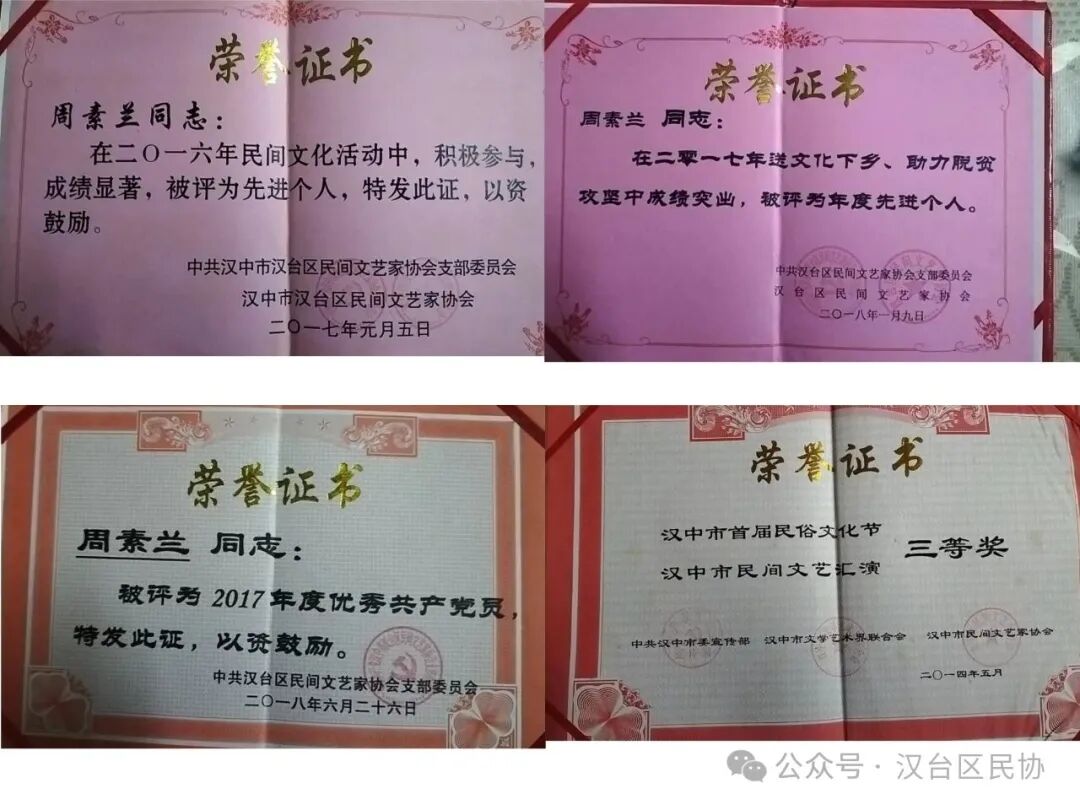 荣誉证书
周素兰同志：
在二〇一六年民间文化活动中，积极参与，
成绩显著，被评为先进个人，特发此证，以资
鼓励。
中共汉中市汉台区民间文艺家协会支部委员会
汉中市汉台区民间文艺家协会
二〇一七年元月五日
荣誉证书
周素兰 同志：
在二零一七年送文化下乡、助力脱贫
攻坚中成绩突出，被评为年度先进个人。
中共汉台区民间文艺家协会支部委员会
汉台区民间文艺家协会
二〇一八年一月九日
荣誉证书
周素兰 同志：
被评为 2017 年度优秀共产党员，
特发此证，以资鼓励。
中共汉台区民间文艺家协会支部委员会
二〇一八年六月二十六日
荣誉证书
汉中市首届民俗文化节
汉中市民间文艺汇演
三等奖
中共汉中市委宣传部 汉中市文学艺术界联合会 汉中市民间文艺家协会
二〇一四年五月
公众号·汉台区民协